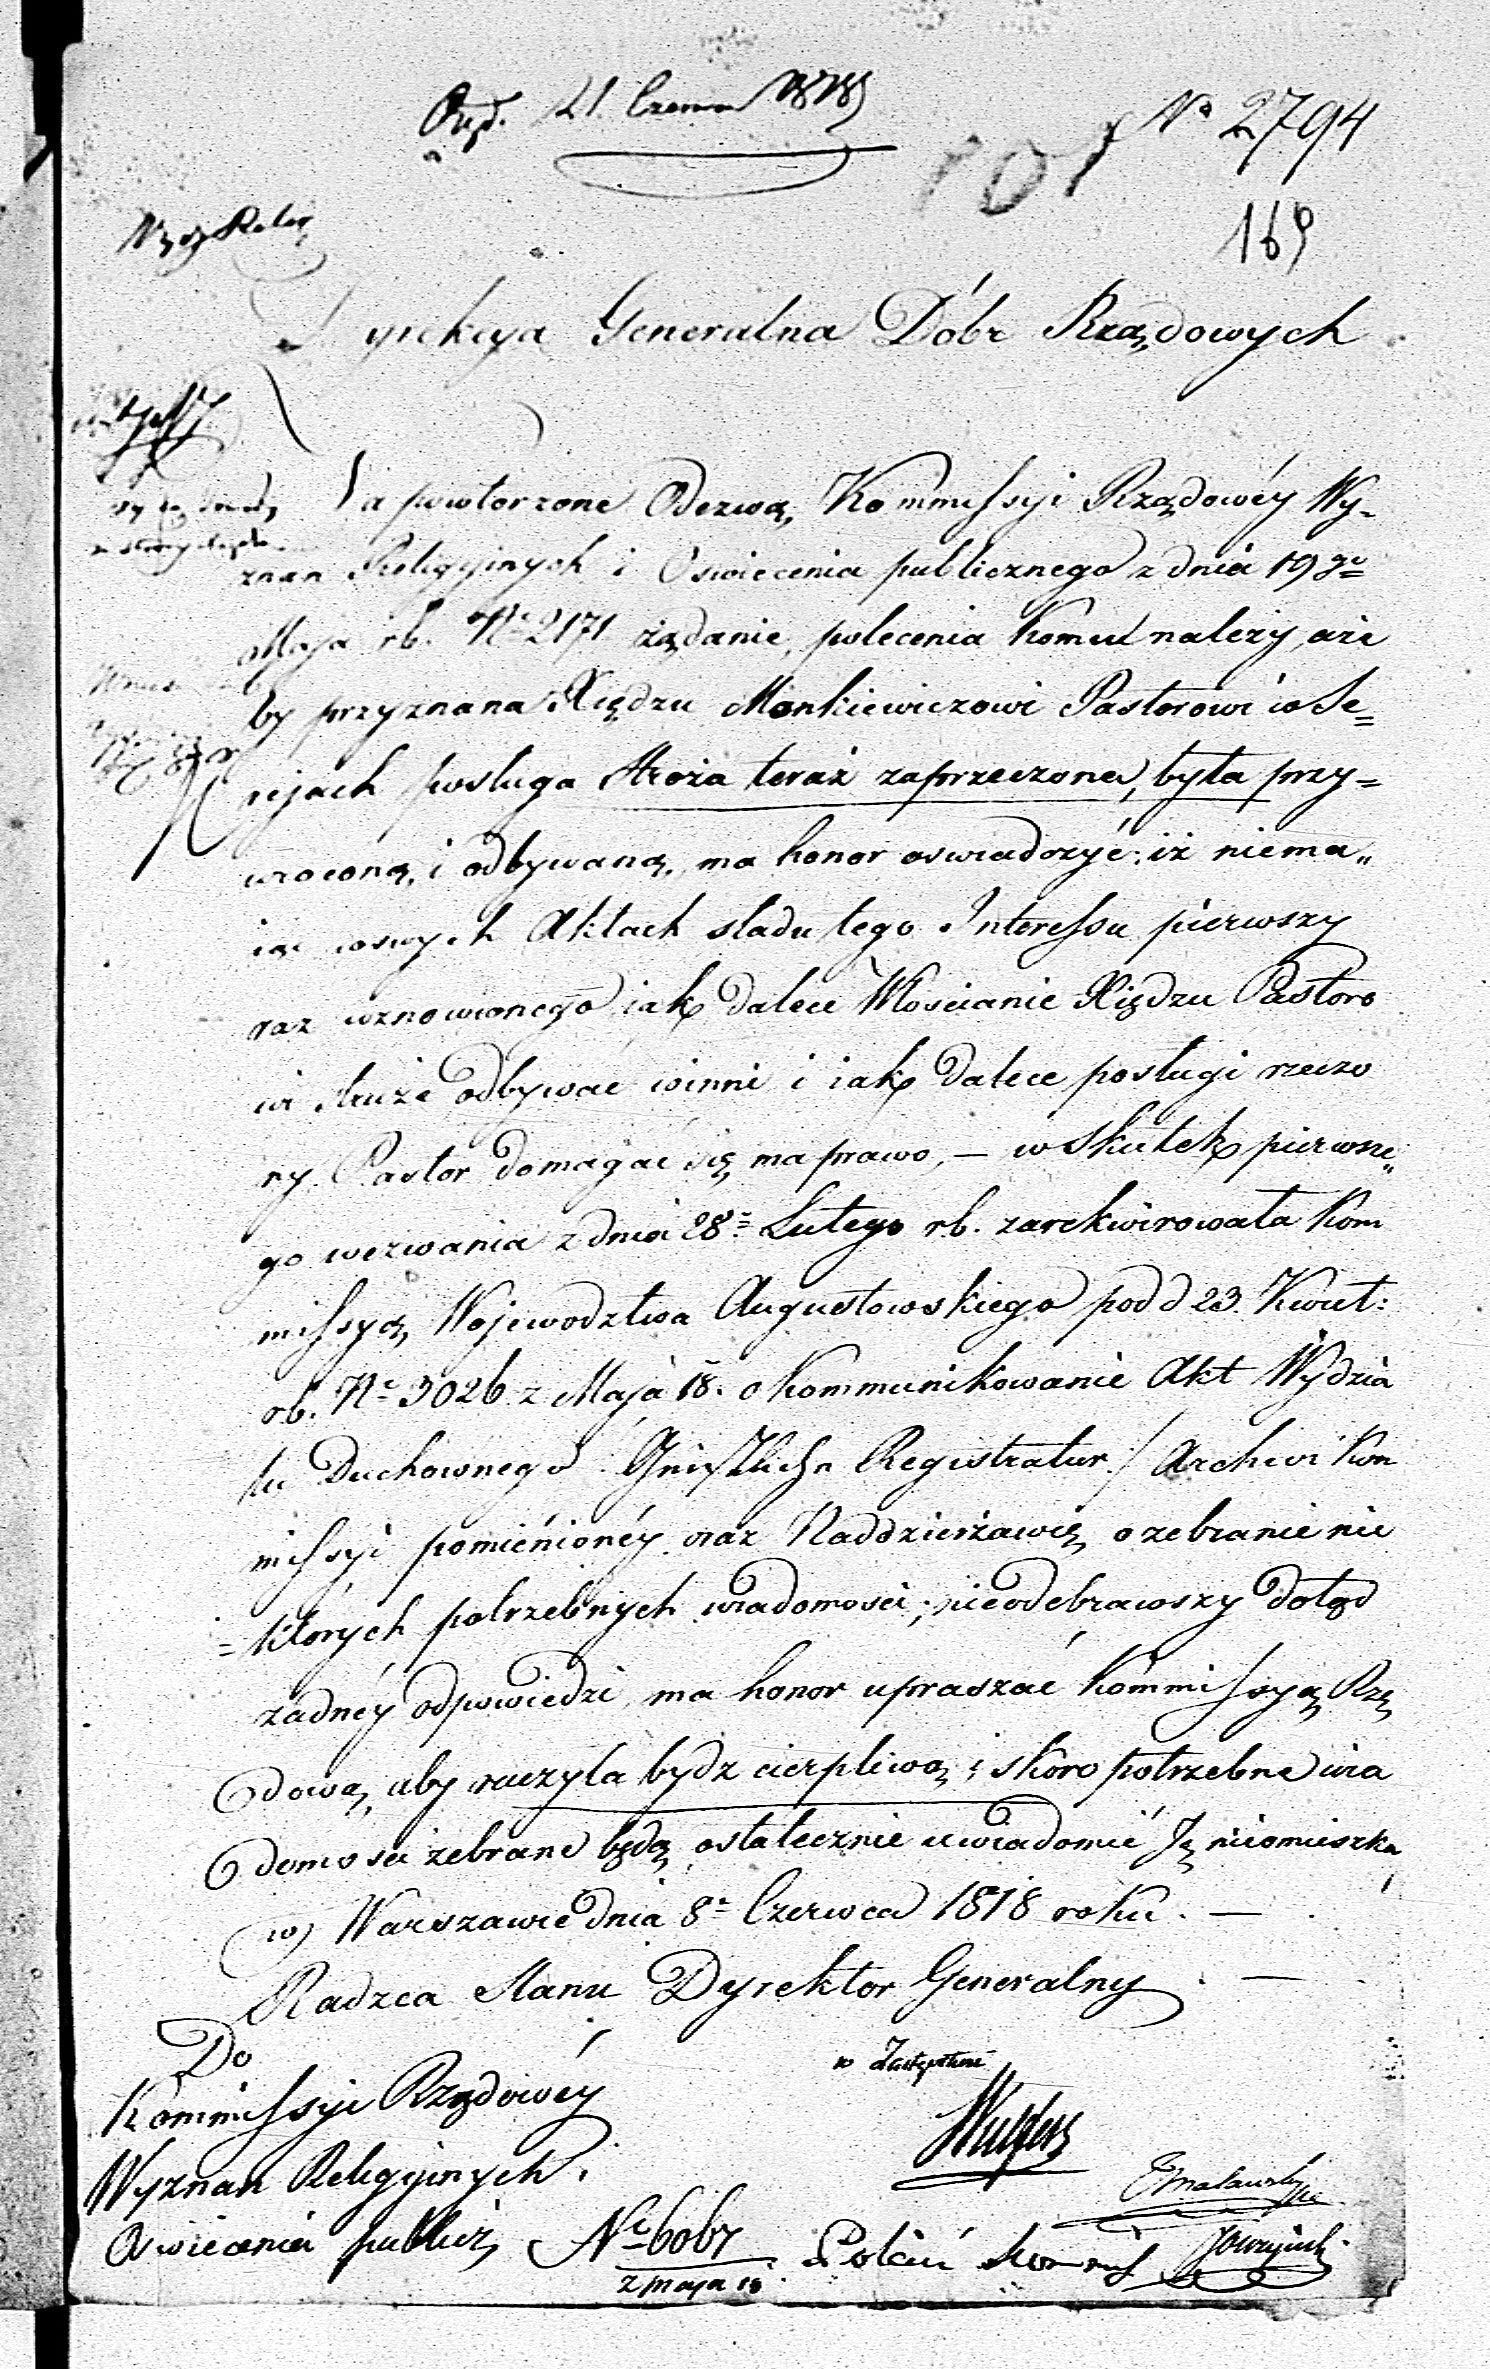 21. Czerwca 1818
Nº 2794
101
169
Dyrekcya Generalna Dóbr Rządowych
Na powtorzone Odezwą Kommissyi Rządowéy Wy-
znan Religyinych i Oswiecenia publicznego z dnia 19go
Maja rb. Nº 2171 żądanie, polecenia komu należy, aże
by przyznana Xiędzu Monkiewiczowi Pastorowi w Se=
rejach posługa stroża teraz zaprzeczona, była przy=
wroconą, i odbywaną, ma honor oswiadczyć: iż niema„
iąc w swych Aktach sladu tego Interessu pierwszy
raz wznowionego iak dalece Włoscianie Xiędzu Pastoro
wi struże odbywać winni i iak dalece posługi rzeczo
ny Pastor domagać się ma prawo, — w skutek pierwsze„
go wezwania z dnia 28= Lutego rb. zarekwirowała Kom
missyą Wojewodztwa Augustowskiego pod d 23. Kwiet:
rb. Nº 3026 z Maja 18. o kommunikowanie Akt Wydzia
łu Duchownego Geistlichen Registratur / Archivi Kom
missyi pomienionéy oraz Naddzierżawię o zebranie nie
=których potrzebnych wiadomosci; nieodebrawszy dotąd
żadnéy odpowiedzi, ma honor upraszać Kommissyą Rzą
dową, aby raczyła bydz cierpliwą; skoro potrzebne wia
domosci zebrane będą, ostatecznie uwiadomić Ją nieomieszka
w Warszawie dnia 8= Czerwca 1818 roku. —
Radzca Stanu Dyrektor Generalny. —
Do
Kommissyi Rządowéy
w Zastępstwie
Wyznan Religyinych i
Oswiecenia publicz Nº 6067
z Maja 18